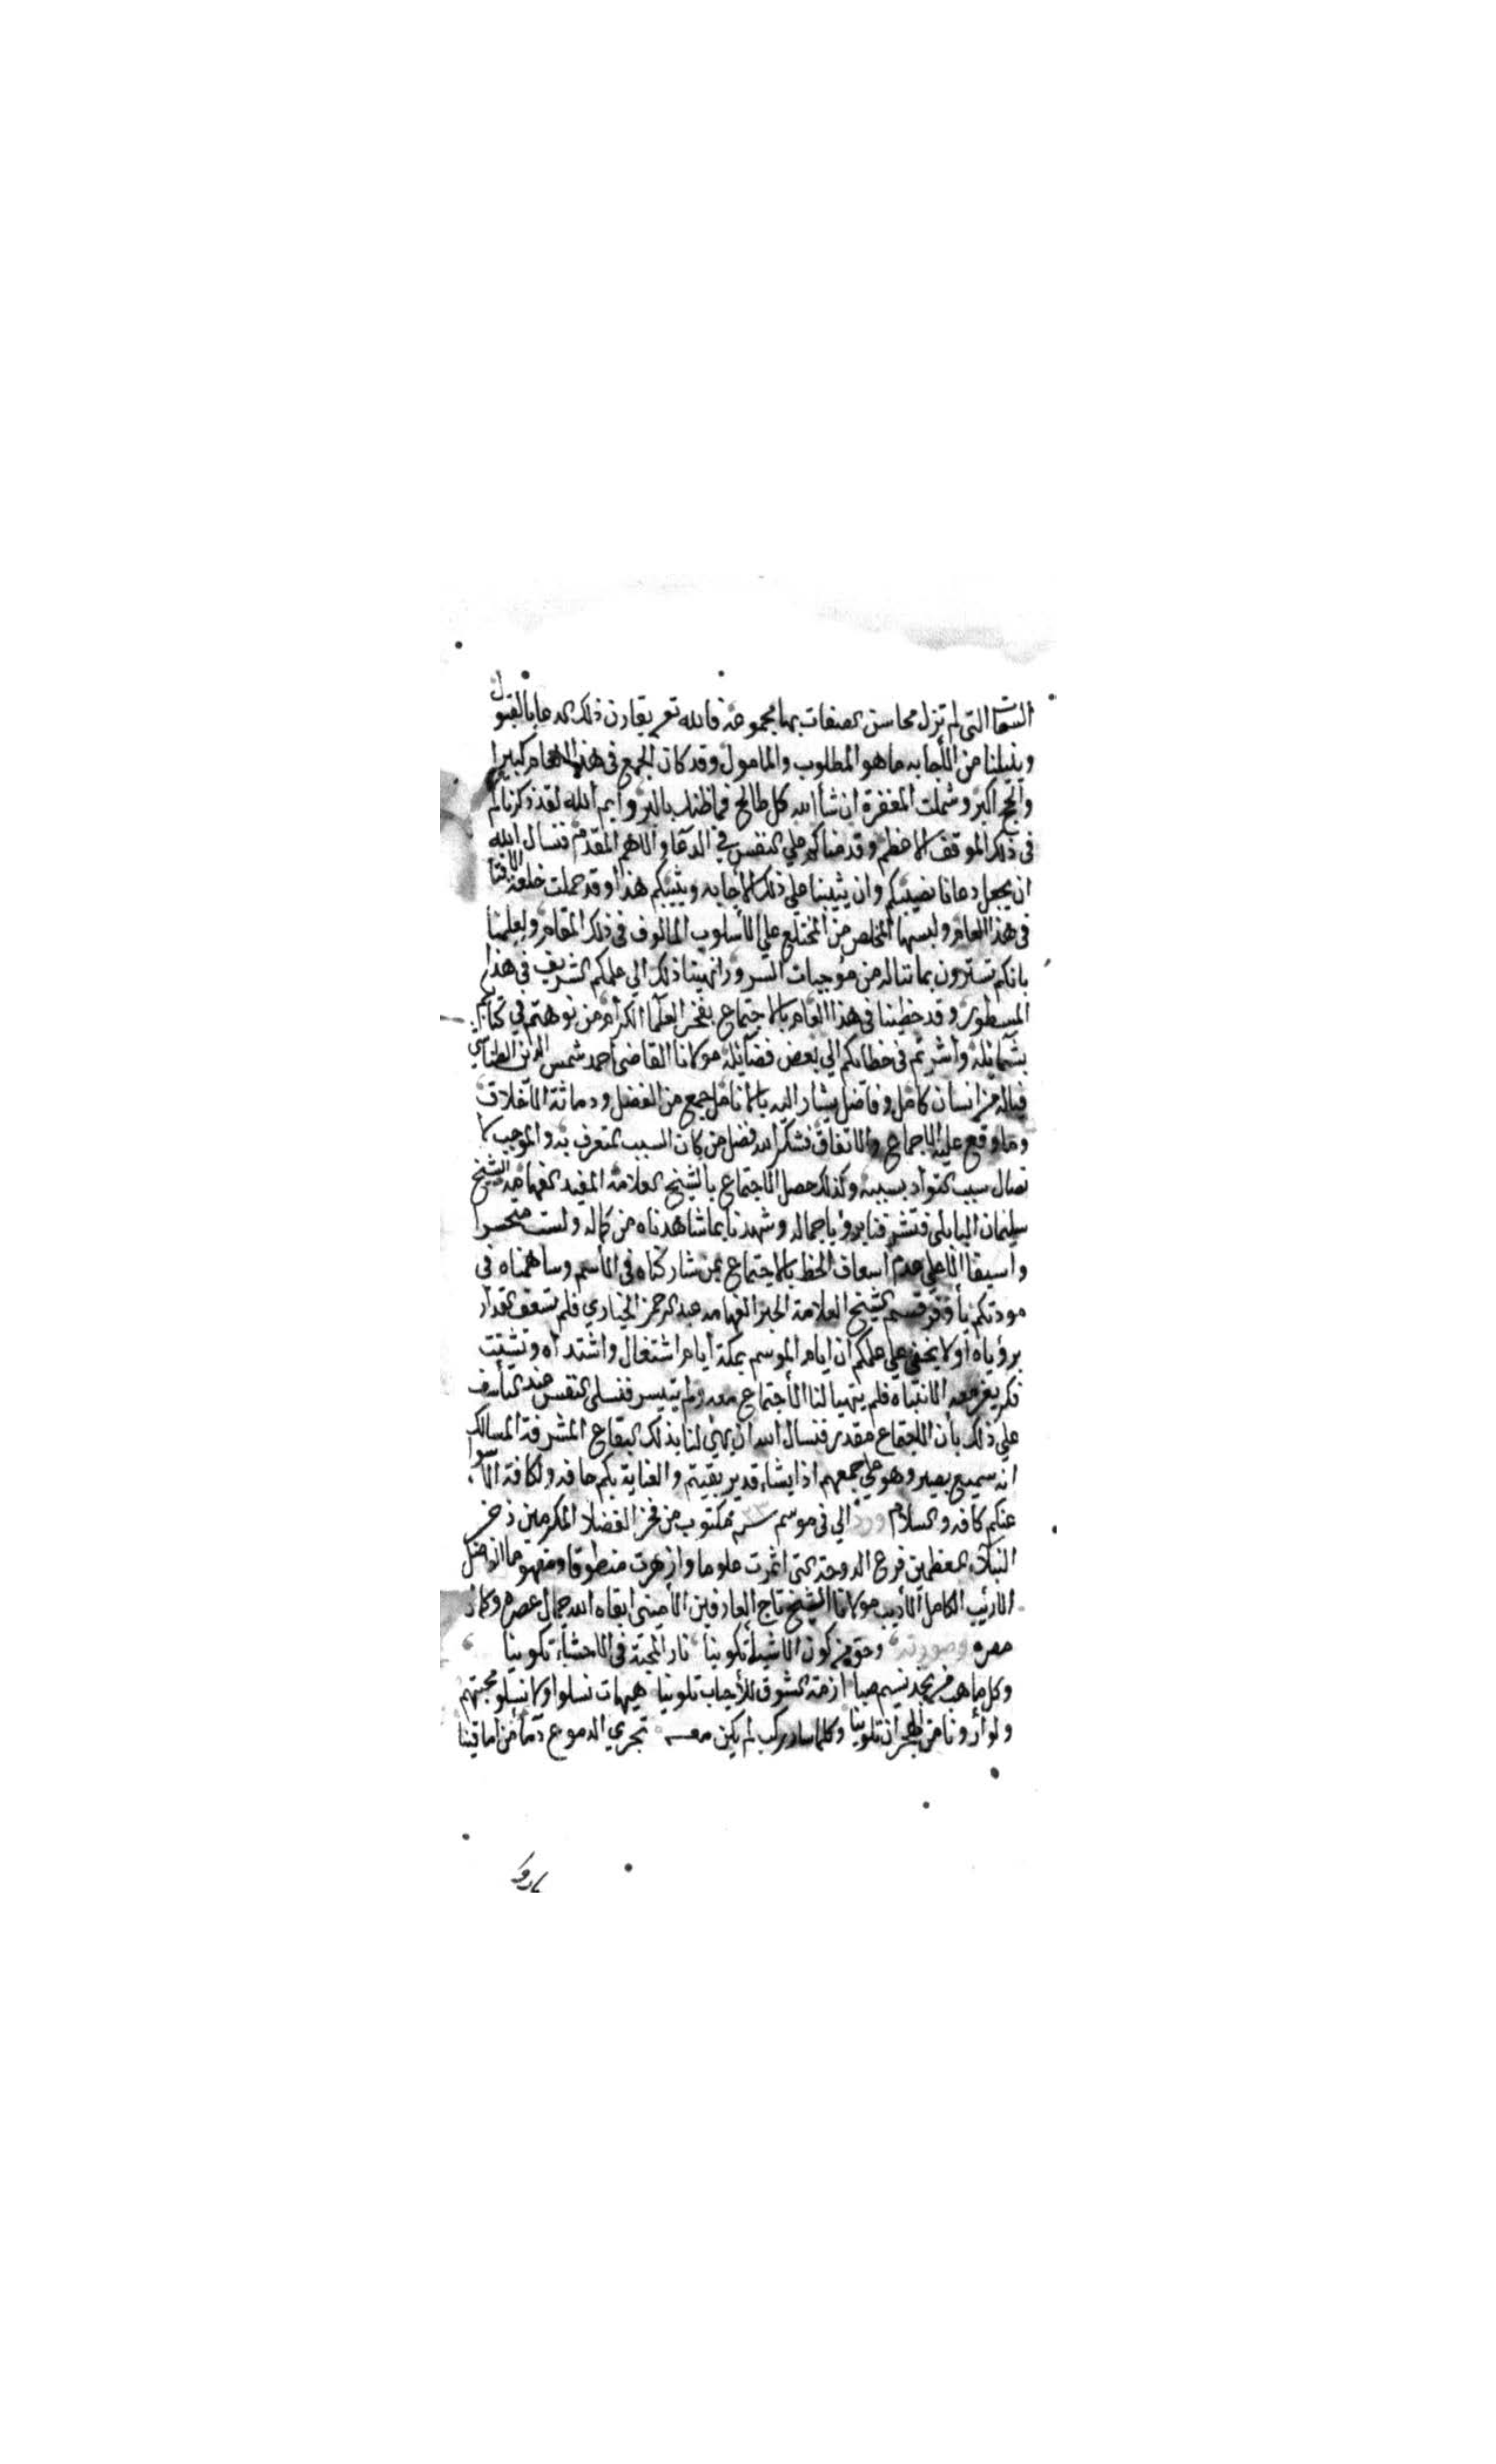 التي لم تزل محاسن الصفات بها مجموعة فالله تعالى يقارن ذلك الدعا بالقبول
وينيلنا من الاجابه ما هو المطلوب والمامول وقد كان الجمع في هذا العام كبيرا
والحج اكبر وشملت المغفرة ان شاء الله كل طالح فما ظنك بالبر وايم الله لقد ذكرناكم
في ذلك الموقف الاعظم وقدمناكم على النفس في الدعا والاهم المقدم فنسال الله
ان يجعل دعانا نصيبكم وان يثيبنا على ذلك الاجابه ويثيبكم هذا وقد حملت خلعة الافتا
في هذا العام ولبسها المخلص من المختلع على الأسلوب المالوف في ذلك المقام ولعلمنا
بانكم تسترون بما نناله من موجبات السرور انهينا ذلك الي علمكم الشريف في هذا
المسطور وقد حظينا في هذا العام بالاجتماع بفخر العلما الكرام من نوهتم في كتابكم
بشمائله واشرتم في خطابكم الي بعض فضايله مولانا القاضي احمد شمس الدين
فياله من انسان كامل وفاضل يشار اليه بالانامل جمع من الفضل ودماثة الاخلاق
وما وقع عليه الاجماع والاتفاق فنشكر الله فضل من كان السبب للتعرف به والموجب لا
تصال سبب التواد بسببه وكذلك حصل الاجتماع بالشيخ العلامة المفيد الفهامة الشيخ
سليمان البابلي فتشرفنا برؤيا جماله وشهدنا بما شاهدناه من كماله ولست متحسرا
واسيفا الا على عدم اسعاف الحظ بالاجتماع بمن شاركناه في الاسم وساهمناه في
مودتكم بأوفر قسم الشيخ العلامة الحبر الفهامه عبد الرحمن الخياري فلم تسعف الاقدار
برؤياه اولا يخفى على علمكم ان ايام الموسم بمكة ايام اشتغال واشتداه وتشتت
فكر يعز معه الانتباه فلم يتهيا لنا الاجتماع معه ولم يتيسر فنسلي النفس عند التأسف
علي ذلك بأن الاجتماع مقدر فنسال الله ان يهيئ لنا بذلك البقاع المشرفة المسالك
انه سميع بصير وهو على جمعهم اذا يشاء قدير بقيتم والعناية بكم حافه ولكافة الاسوا
عنكم كافه والسلام ورد الي في موسم سنة مكتوب من فخر الفضلا المكرمين ذخر
النبلاء المعظمين فرع الدوحة التي اثمرت علوما وازهرت منطوقا ومفهوما الفاضل
الاريب الكامل الاديب مولانا الشيخ تاج العارفين الأميني ابقاه الله جمال عصره وكمال
مصره وصورته وحق من كون الاشياء تكوينا نار المحبة في الاحشاء تكوينا
وكل ما هب من نجد نسيم صبا ازمة الشوق للأحباب تلوينا هيهات نسلوا ولا نسلو محبتهم
ولو أرونا من الهجران تلوينا وكلما سار ركب لم يكن معه تجري الدموع دما من اماقينا